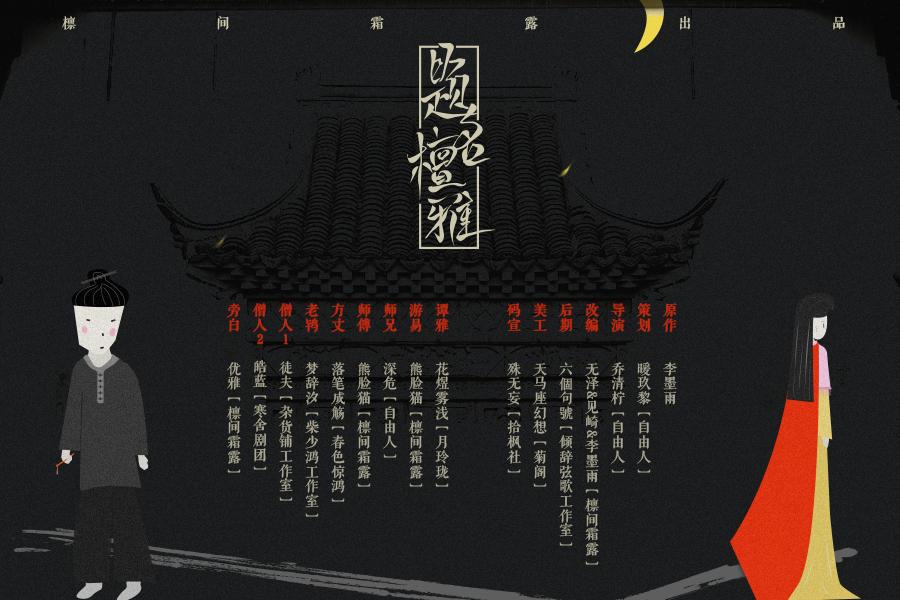 檩间霜露出品
题名
檀雅
原作 李墨雨
策划 暖玖黎［自由人］
导演 乔清柠［自由人］
改编 无泽&见崎&李墨雨［檩间霜露］
后期 六個句號［倾辞弦歌工作室］
美工 天马座幻想［菊阁］
码宣 殊无妄［拾枫社］
谭雅 花煜雾浅［月玲珑］
游易 熊脸猫［檩间霜露］
师兄 深危［自由人］
师傅 熊脸猫［檩间霜露］
方丈 落笔成觞［春色惊鸿］
老鸨 梦辞汐［柴少鸿工作室］
僧人1 徒夫［杂货铺工作室］
僧人2 皓蓝［寒舍剧团］
旁白 优雅［檩间霜露］